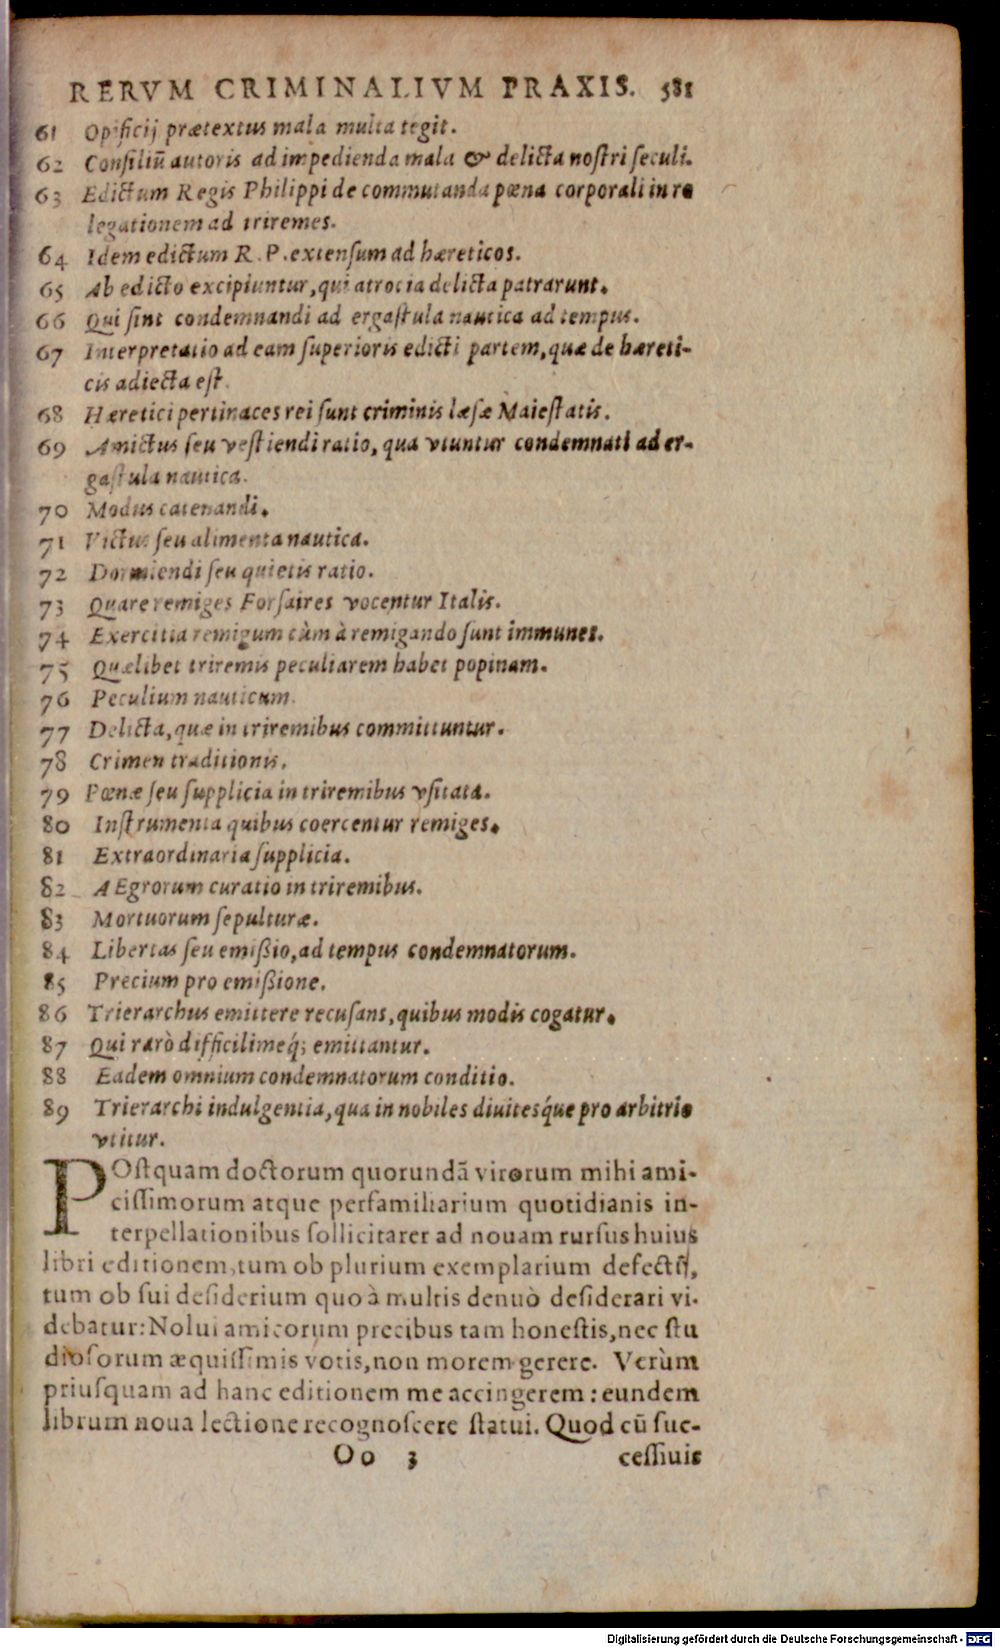 RERVM CRIMINALIVM PRAXIS. 581
61 Opificij prætextus mala multa tegit.
62 Consiliũ autoris ad impedienda mala & delicta nostri seculi.
63 Edictum Regis Philippi de commutanda pœna corporali in re
legationem ad triremes.
64 Idem edictum R. P. extensum ad hæreticos.
65 Ab edicto excipiuntur, qui atrocia delicta patrarunt.
66 Qui sint condemnandi ad ergastula nautica ad tempus.
67 Interpretatio ad eam superioris edicti partem, quæ de hæreti-
cis adiecta est.
68 Hæretici pertinaces rei sunt criminis læsæ Maiestatis.
69 Amictus seu vestiendi ratio, qua vtuntur condemnati ad er-
gastula nautica.
70 Modus catenandi.
71 Victus seu alimenta nautica.
72 Dormiendi seu quietis ratio.
73 Quare remiges Forsaires vocentur Italis.
74 Exercitia remigum cùm à remigando sunt immunes.
75 Quælibet triremis peculiarem habet popinam.
76 Peculium nauticum.
77 Delicta, quæ in triremibus committuntur.
78 Crimen traditionis.
79 Pœnæ seu supplicia in triremibus vsitata.
80 Instrumenta quibus coercentur remiges.
81 Extraordinaria supplicia.
82 AEgrorum curatio in triremibus.
83 Mortuorum sepulturæ.
84 Libertas seu emißio, ad tempus condemnatorum.
85 Precium pro emißione.
86 Trierarchus emittere recusans, quibus modis cogatur.
87 Qui rarò difficilimeq́; emittantur.
88 Eadem omnium condemnatorum conditio.
89 Trierarchi indulgentia, qua in nobiles diuitesq́ue pro arbitrio
vtitur.
POstquam doctorum quorundã virorum mihi ami-
cissimorum atque perfamiliarium quotidianis in-
terpellationibus sollicitarer ad nouam rursus huius
libri editionem, tum ob plurium exemplarium defectũ,
tum ob sui desiderium quo à multis denuò desiderari vi-
debatur: Nolui amicorum precibus tam honestis, nec stu
diosorum æquissimis votis, non morem gerere. Verùm
priusquam ad hanc editionem me accingerem: eundem
librum noua lectione recognoscere statui. Quod cũ suc-
Oo 3 cessiuis
Digitalisierung gefördert durch die Deutsche Forschungsgemeinschaft - DFG